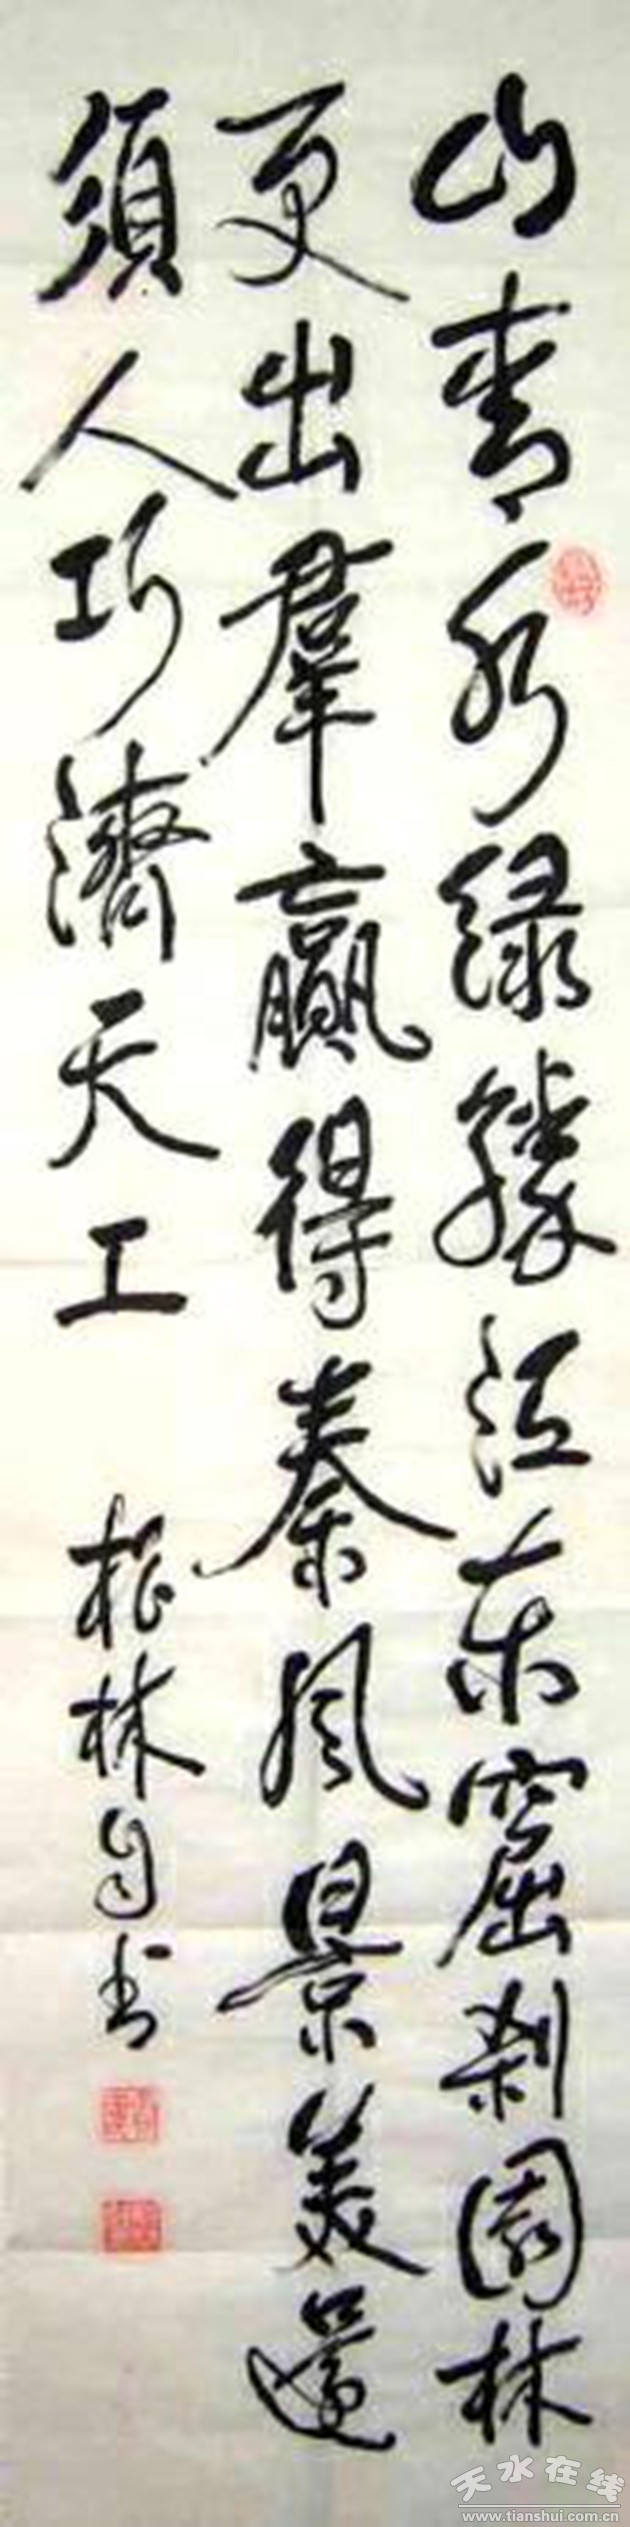 山青水绿胜江东窟刹园林
更出群赢得秦风景美还
须人巧济天工
松林自书
天水在线
www.tianshui.com.cn